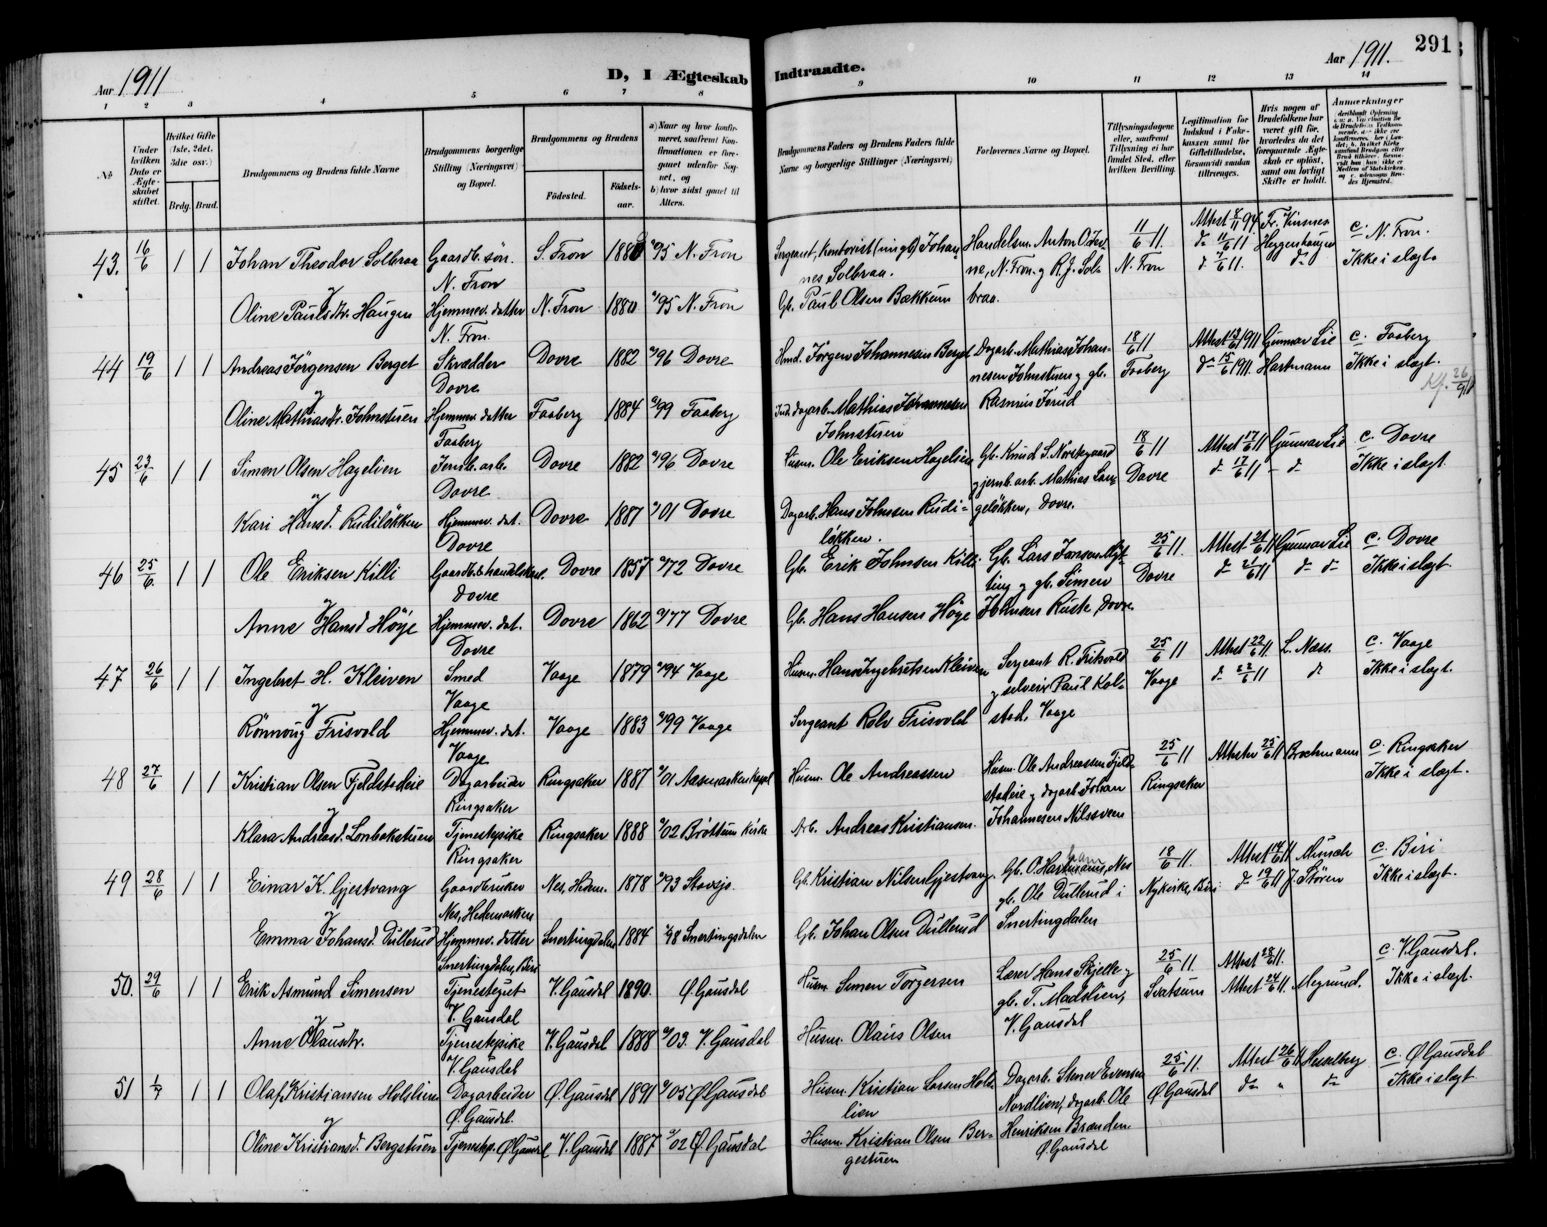 Aar 1911
D, I Ægteskab Indtraadte.
Aar 1911.
291
1 2 3 4 5 6 7 8 9 10 11 12 13 14
No
Under hvilken Dato er Ægteskabet stiftet.
Hvilket Gifte (1ste, 2det, 3die osv.)
Brdg. Brud.
Brudgommens og Brudens fulde Navne
Brudgommens og Brudens borgerlige Stilling (Næringsvei) og Bopæl.
Brudgommens og Brudens
Fødested.
Fødselsaar.
a) Naar og hvor konfirmeret, saafremt Konfirmationen er foregaaet udenfor Sognet, og b) hvor sidst gaaet til Alters.
Brudgommens Faders og Brudens Faders fulde Navne og borgerlige Stillinger (Næringsvei)
Forlovernes Navne og Bopæl.
Tillysningsdagene eller, saafremt Tillysning ei har fundet Sted, efter hvilken Bevilling.
Legitimation for Indskud i Enkekassen samt for Giftetilladelse, forsaavidt saadan tiltrænges.
Hvis nogen af Brudefolkene har været gift før, hvorledes da det foregaaende Ægteskab er opløst, samt om lovligt Skifte er holdt.
Anmærkninger
43. 16/6 1 1 Johan Theodor Solbraa Gaardb. søn. N. Fron S. Fron 1880 95 N. Fron Sergeant, kontorist Johannes Solbraa. Handelsm. Anton O. N. Fron og R. J. Solbraa. 11/6 11. N. Fron Attest 94 do 11/6 11 Fr. Kinsnes Heggenhaugen c. N. Fron. Ikke i slegt.
og
Oline Paulsdtr. Haugen Hjemmev. datter N. Fron. N. Fron 1880 95 N. Fron Gb. Paul Olsen Bækkum
44 19/6 1 1 Andreas Jörgensen Berget Skrædder Dovre Dovre 1882 96 Dovre Husmd. Jörgen Johannesen Berget Dagarb. Mathias Johannesen Johnstuen og gb. Rasmus Jorud 18/6 11 Faaberg Attest 1911 do 15/6 1911. Gunnar Lie Hartmann c. Faaberg Ikke i slegt.
26/9 11
og
Oline Mathiasdtr. Johnstuen Hjemmev. datter Faaberg Faaberg 1884 99 Faaberg Dagarb. Mathias Johannesen Johnstuen
45 23/6 1 1 Simon Olsen Hagelien Jernb. arb. Dovre Dovre 1882 96 Dovre Husm. Ole Eriksen Hagelien Gb. Knud S. Norstegaard og jernb. arb. Mathias Langgeløkken, Dovre. 18/6 11 Dovre Attest 17/6 11 do 17/6 11 Gunnar Lie do c. Dovre Ikke i slegt
og
Kari Hansd. Rudiløkken Hjemmev. dat. Dovre Dovre 1887 01 Dovre Dagarb. Hans Johnsen Rudiløkken.
46 25/6 1 1 Ole Eriksen Killi Gaardb. & handelsm. Dovre Dovre 1857 72 Dovre Gb. Erik Johnsen Killi Gb. Lars Jonsen og gb. Simen Johnsen Ruste, Dovre. 25/6 11. Dovre Attest 21/6 11 do 21/6 11 Gunnar Lie do do c. Dovre Ikke i slegt.
og
Anne Hansd Höye Hjemmev. dat. Dovre Dovre 1862 77 Dovre Gb. Hans Hansen Höye
47 26/6 1 1 Ingebret H. Kleiven Smed Vaage Vaage 1879 94 Vaage Husm. Hans Ingebretsen Kleiven Sergeant R. Frisvold og selveir Paul Kolstad, Vaage 25/6 11 Vaage Attest 22/6 11. do 22/6 11 L. Næss. do c. Vaage Ikke i slegt.
og
Rönnoug Frisvold Hjemmev. dat. Vaage Vaage 1883 99 Vaage Sergeant Rolv Frisvold
48 27/6 1 1 Kristian Olsen Fjeldstedeie Dagarbeider Ringsaker Ringsaker 1887 01 Aasmarken Kapel Husm. Ole Andreassen Husm. Ole Andreassen Fjeldstadeie og dagarb. Johan Johannesen Nilssveen 25/6 11 Ringsaker Attester 25/6 11 Brochmann c. Ringsaker Ikke i slegt.
og
Klara Andreasd. Lonbakstuen Tjenestepike Ringsaker Ringsaker 1888 02 Brøttum kirke Arb. Andreas Kristiansen.
49 28/6 1 1 Einar K. Gjestvang Gaardbruker Nes, Hedemarken Nes, Hedm. 1878 93 Stavsjø. Gb. Kristian Nilsen Gjestvang Gb. O. Nes gb. Ole Dullerud i Snertingdalen 18/6 11. Nykirke, Biri Attest 14/6 11 do 19/6 11 Münch J. Stören c. Biri Ikke i slegt.
og
Emma Johansd. Dullerud Hjemmev. datter Snertingdalen, Biri Snertingdalen 1884 98 Snertingsdalen Gb. Johan Olsen Dullerud
50. 29/6 1 1 Erik Asmund Simensen Tjenestegut V. Gausdal V. Gausdal 1890. Ø Gausdal Husm. Simen Torgersen Lærer Hans Skjelle og gb. T. Madslien, V. Gausdal 25/6 11. Svatsum Attest 28/6 11. Attest 24/6 11. Megrund. c. V. Gausdal. Ikke i slegt.
og
Anne Olausdtr. Tjenestepike V. Gausdal V. Gausdal 1888 03. V. Gausdal Husm. Olaus Olsen
51 1/7 1 1 Olaf Kristiansen Holslien Dagarbeider Ø. Gausdal. Ø. Gausdal 1891 05 Ø Gausdal Husm. Kristian Larsen Holslien Dagarb. Stener Evensen Nordlien, dagarb. Ole Henriksen Branden. Ø. Gausdal 25/6 11. Ø. Gausdal Attest 26/6 11 do " Hesselberg do c. Ø Gausdal Ikke i slegt
og
Oline Kristiansd. Bergstuen Tjenestep. Ø Gausdal V. Gausdal 1887 02 Ø Gausdal Husm. Kristian Olsen Bergestuen